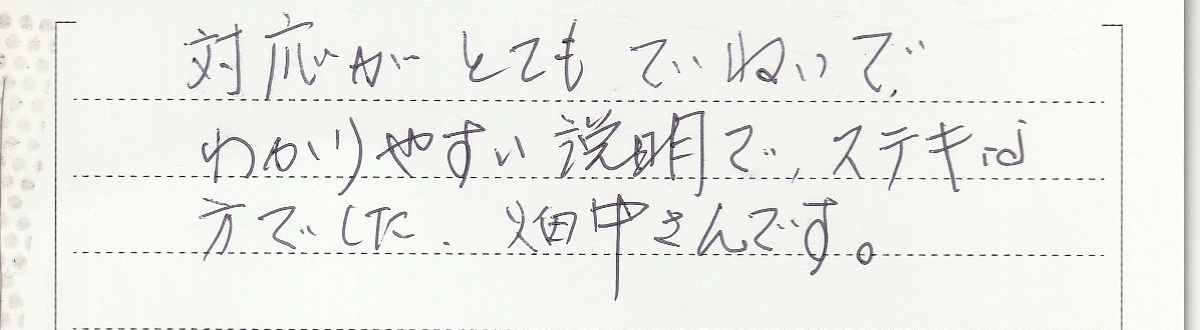 対応がとてもていねいで、
わかりやすい説明で、ステキな
方でした. 畑中さんです。